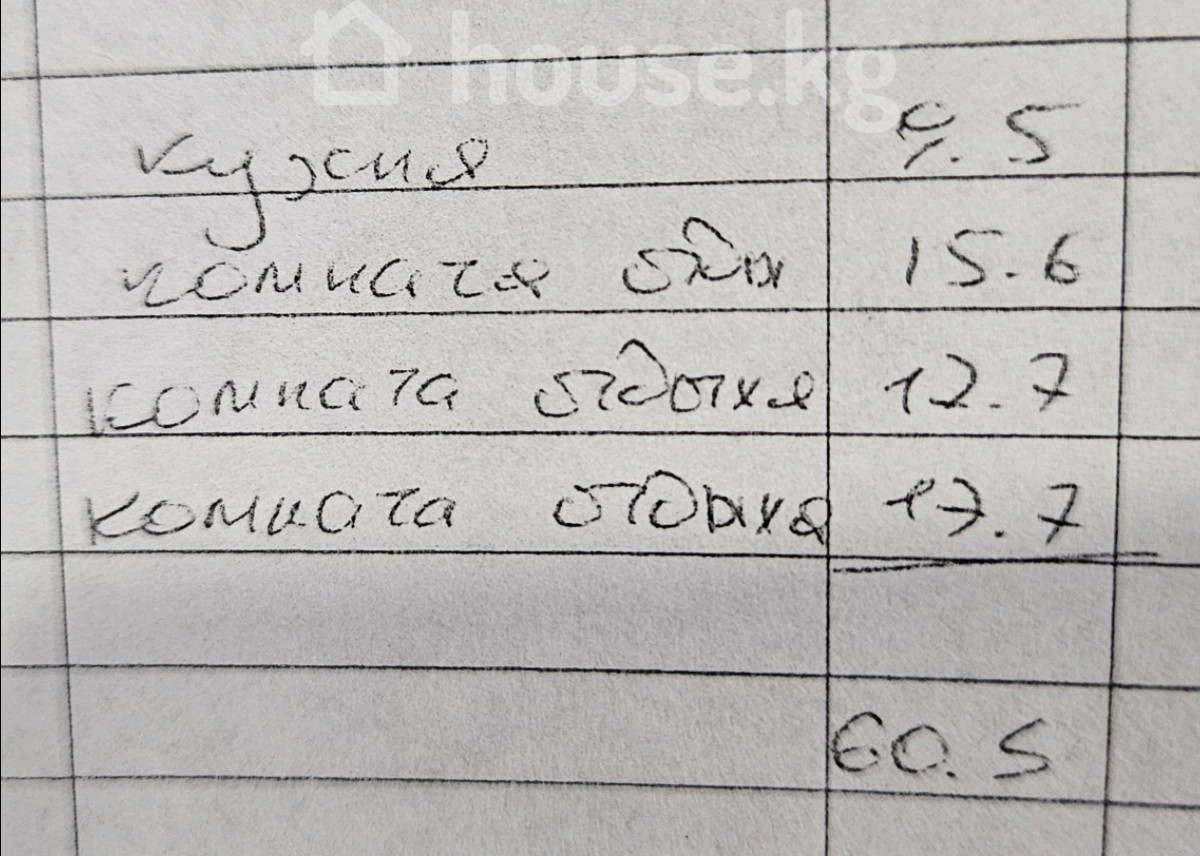 house.kg
кухня 9.5
комната 15.6
комната отдыха 12.7
комната отдыха
60.5